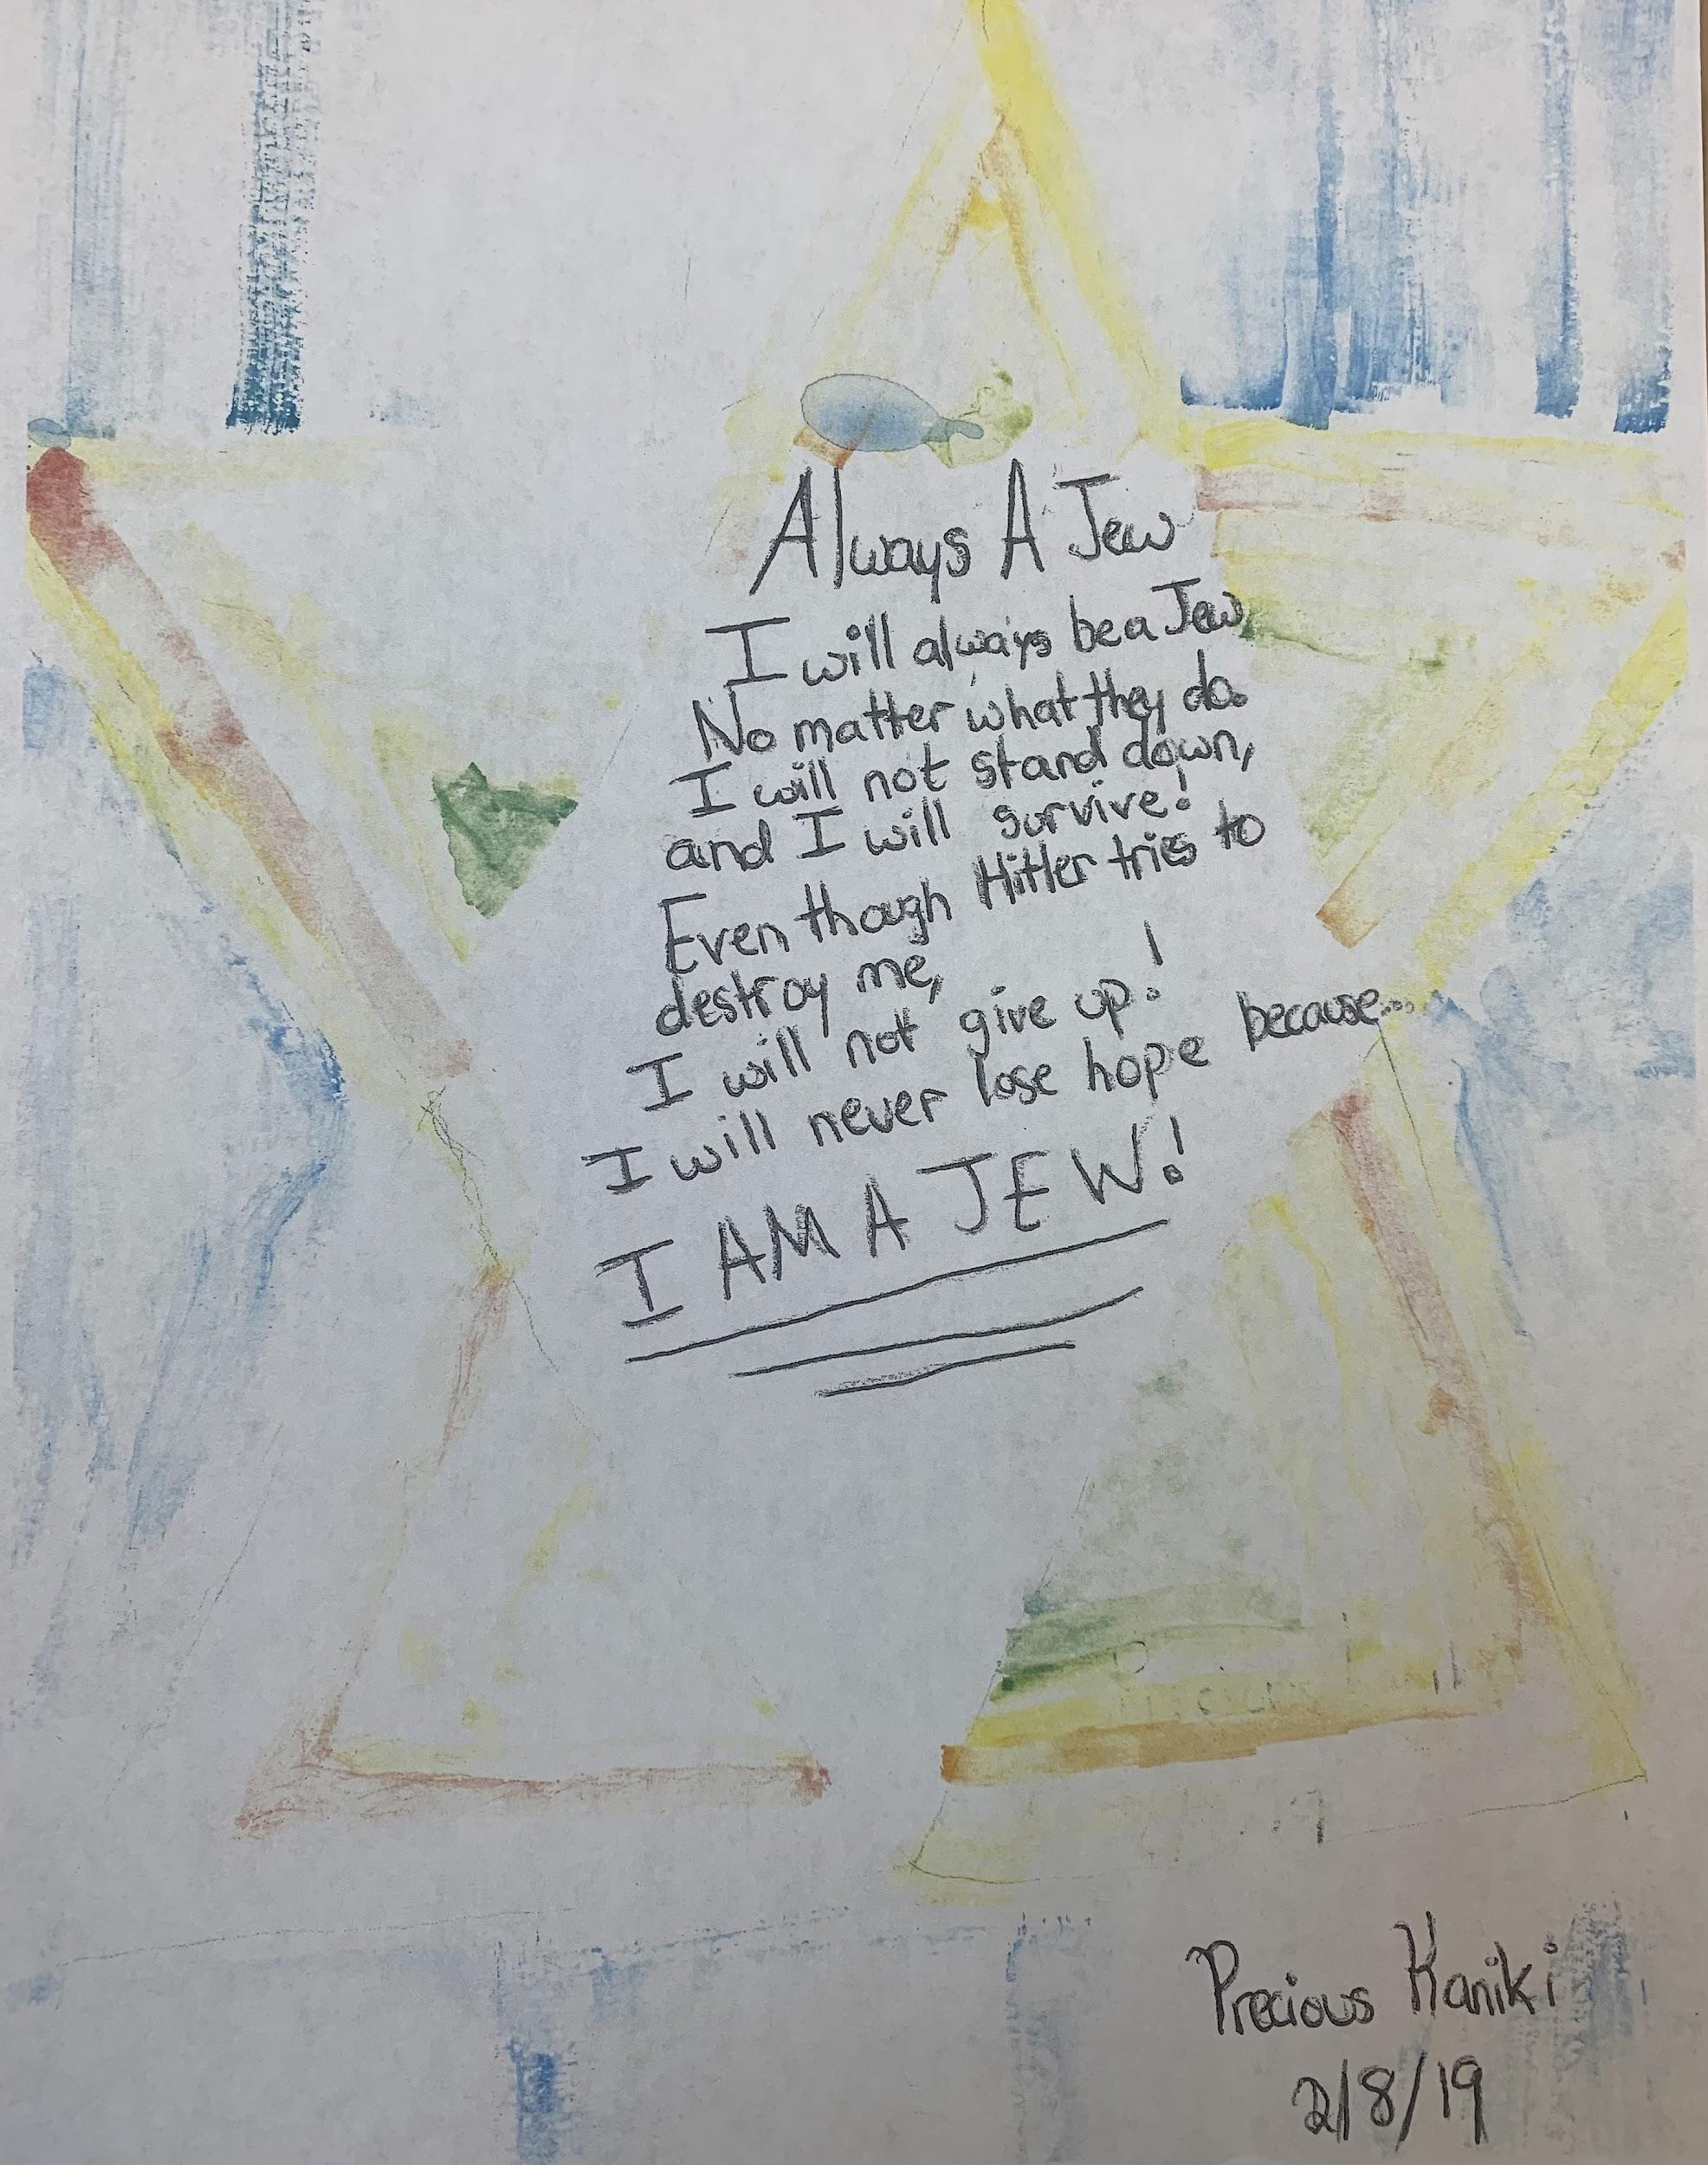 Always A Jew
I will always be a Jew,
No matter what they do.
I will not stand down,
and I will survive!
Even though Hitler tries to
destroy me,
I will not give up!
I will never lose hope because...
I AM A JEW!
Precious Kaniki
2/8/19